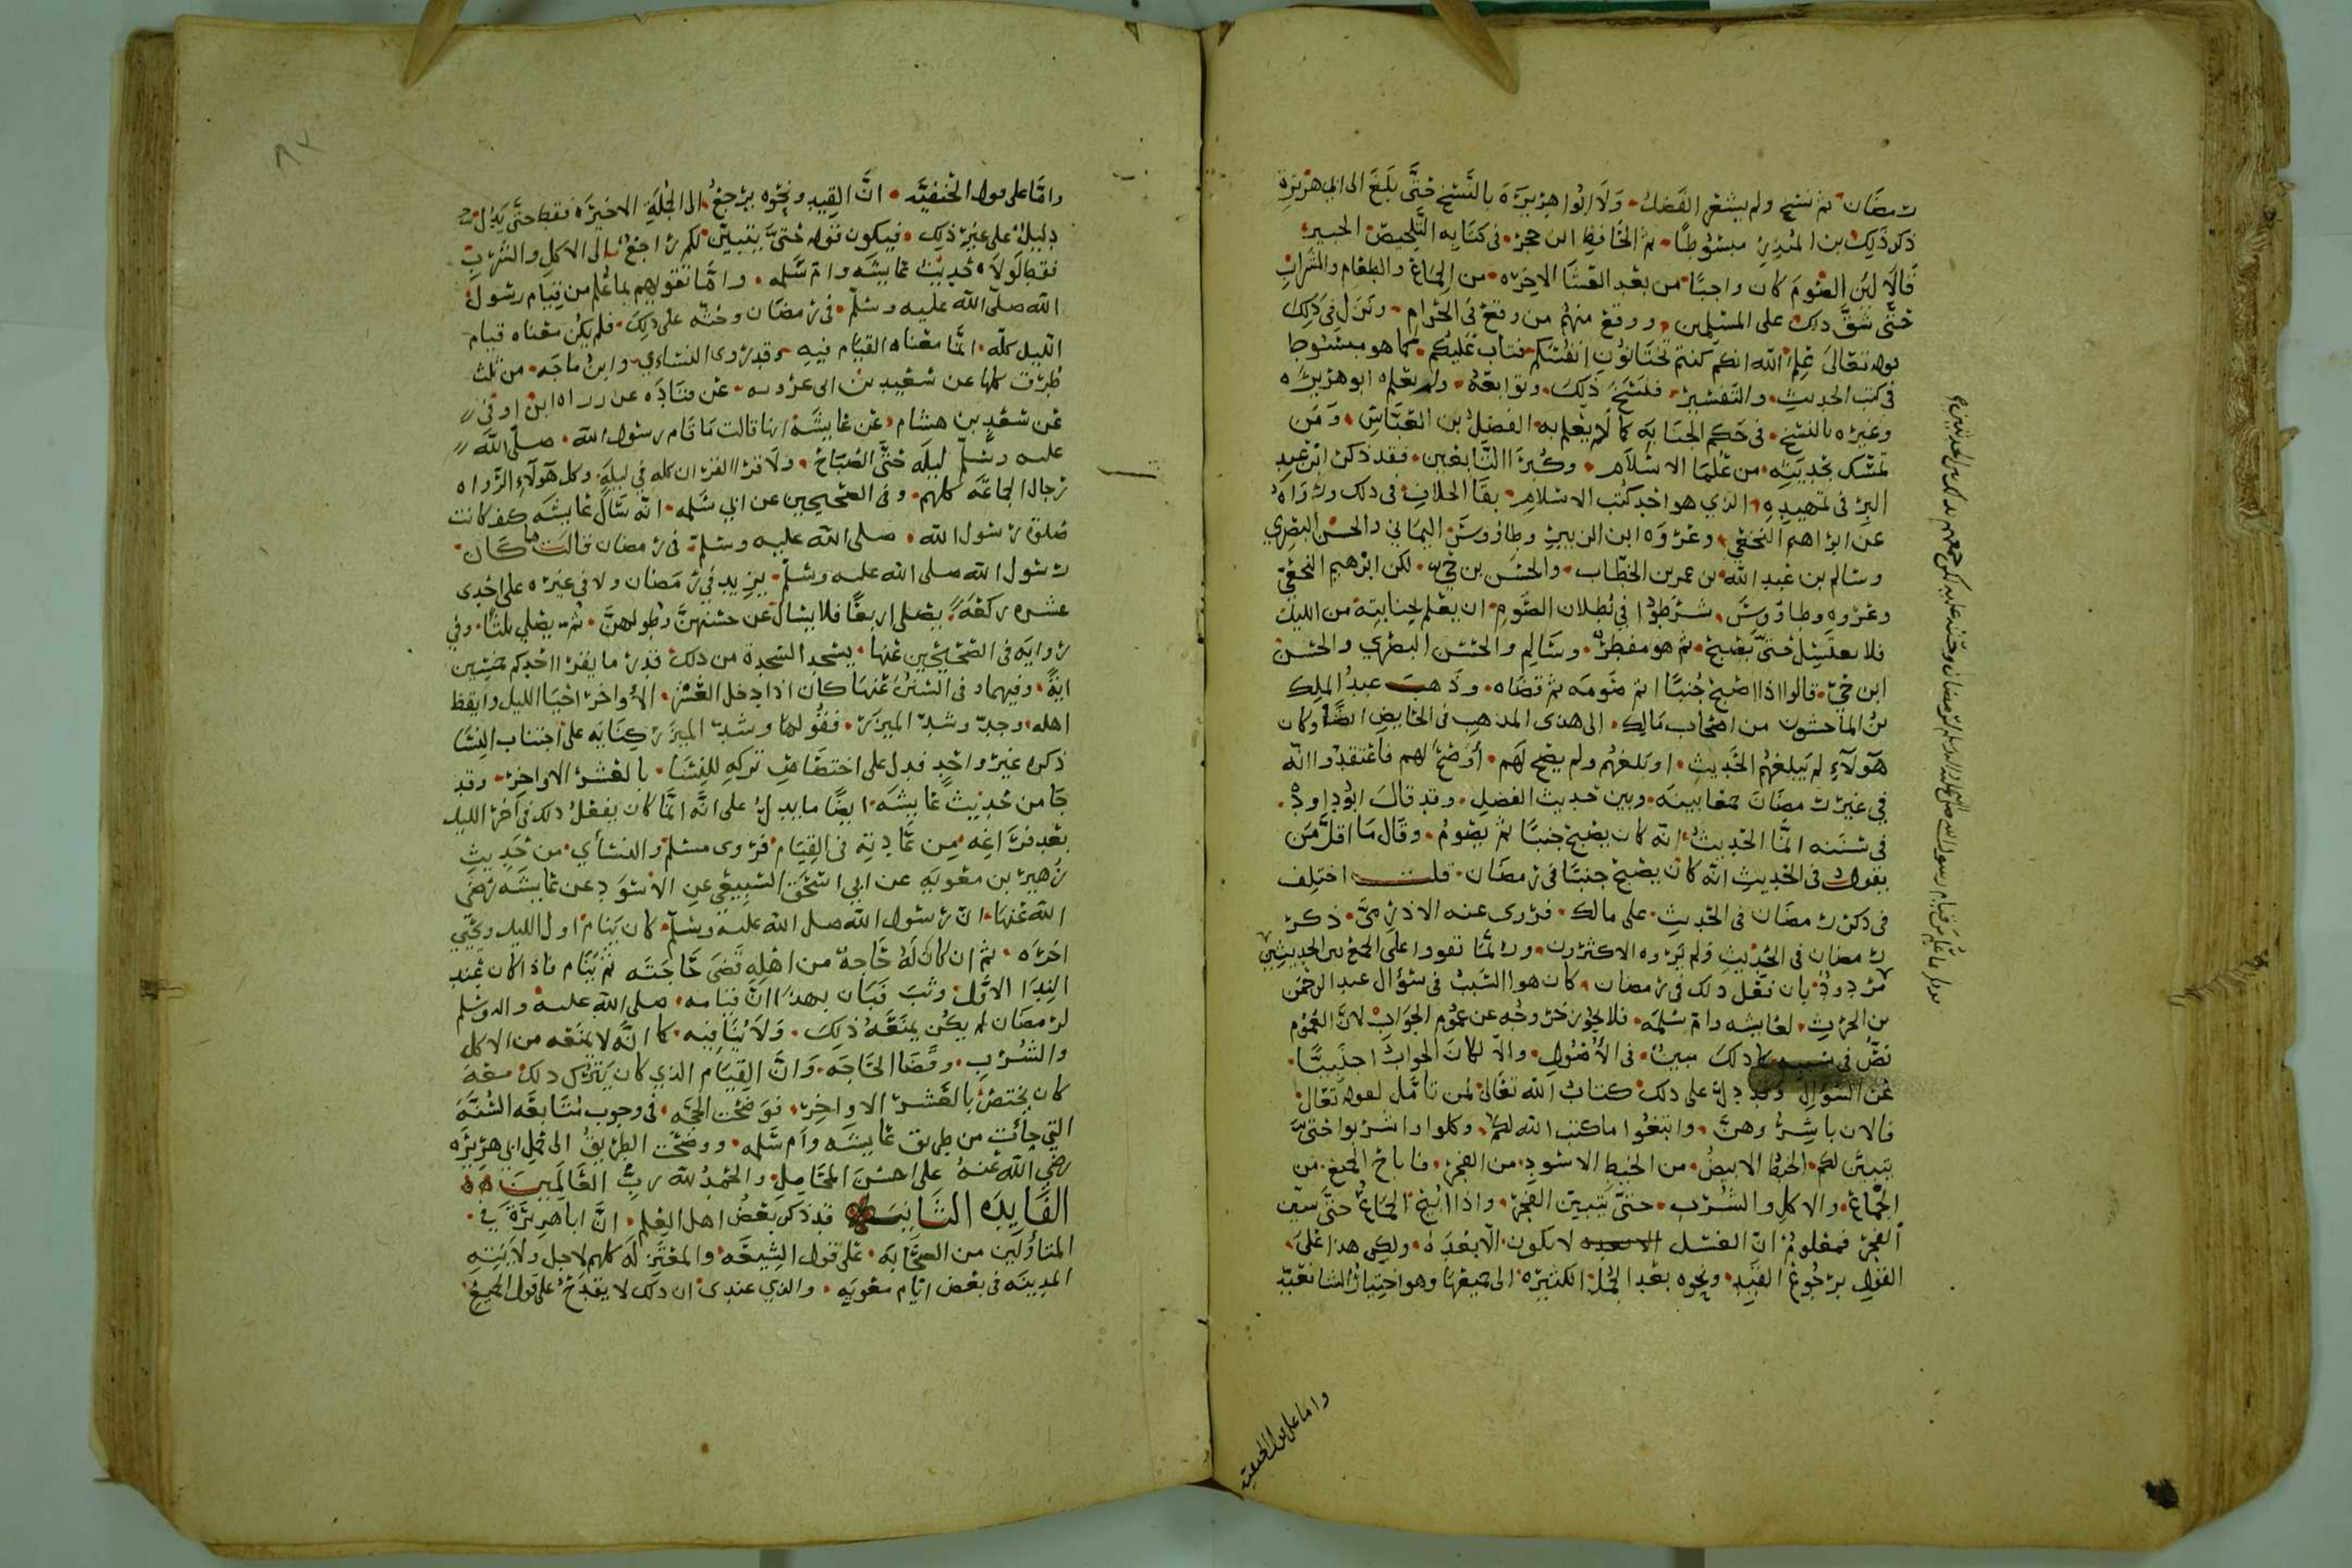 رمضان ثم نسخ ولم يشعر الفضل ولا ابوا هريرة بالنسخ حتى بلغ الى ابي هريرة
ذكر ذلك بن المنذر مبسوطا ثم الحافظ ابن حجر في كتابه التلخيص الحبير
قالا لئن الصوم كان واجبا من بعد العشا الاخره من الجماع والطعام والشراب
حتى شق ذلك على المسلمين ووقع منهم من وقع في الحرام ونزل في ذلك
قوله تعالى علم الله انكم كنتم تختانون انفسكم فتاب عليكم كما هو مبسوط
في كتب الحديث والتفسير فنسخ ذلك وتوابعه ولم يعلم ابو هريره
وغيره بالنسخ في حكم الجنابه كما لم يعلم به الفضل بن العباس ومن
تمسك بحديثه من علما الاسلام وكبرا التابعين فقد ذكر ابن عبد
البر في تمهيده الذي هو احد كتب الاسلام بقا الخلاف في ذلك ورواه
عن ابراهيم النخعي وعروه ابن الزبير وطاووس اليماني والحسن البصري
وسالم بن عبد الله بن عمر بن الخطاب والحسن بن حي لكن ابرهيم النخعي
وعروه وطاووس شرطوا في بطلان الصوم ان يعلم بجنابته من الليل
فلا يغتسل حتى يصبح ثم هو مفطر وسالم والحسن البصري والحسن
ابن حي قالوا اذا اصبح جنبا اتم صومه ثم قضاه وذهب عبد الملك
بن الماجشون من اصحاب مالك الى هذى المذهب في الحايض ايضا وكان
هولاء لم يبلغهم الحديث او بلغهم ولم يصح لهم او صح لهم فاعتقدوا انه
في غير رمضان جمعا بينه وبين حديث الفضل وقد قال ابوداود
في سننه انما الحديث انه كان يصبح جنبا ثم يصوم وقال ما اقل من
يقول في الحديث انه كان يصبح جنبا في رمضان قلت اختلف
في ذكر رمضان في الحديث على مالك فروى عنه الاذرمي ذكر
رمضان في الحديث ولم يروه الاكثرون وربما تقووا على الجمع بين الحديثين
مردود بان نقل ذلك في رمضان كان هو السبب في سؤال عبد الرحمن
بن الحرث لعايشه وام سلمه فلا يجوز خروجه عن عموم الجواب لان العموم
نص في سببه كما ذلك مبين في الاصول والا لكان الجواب اجنبيا
عن السؤال وقد دل على ذلك كتاب الله تعالى لمن تامل لقوله تعالى
فالان باشروهن وابتغوا ما كتب الله لكم وكلوا واشربوا حتى
يتبين لكم الخيط الابيض من الخيط الاسود من الفجر فاباح الجميع من
الجماع والاكل والشرب حتى يتبين الفجر واذا ابيح الجماع حتى يتبين
الفجر فمعلوم ان الغسل لا يكون الا بعده ولكن هذا على
القول برجوع القيد ونحوه بعد الجمل الكثيره الى جميعها وهو اختيار الشافعيه
واما على قول الحنفيه
واما على قول الحنفيه ان القيد ونحوه يرجع الى الجملة الاخيره فقط حتى يدل
دليل على غير ذلك فيكون قوله حتى يتبين لكم راجع الى الاكل والشرب
فقط لولا حديث عايشه وام سلمه واما تقويهم بما علم من قيام رسول
الله صلى الله عليه وسلم في رمضان وحثه على ذلك فلم يكن معناه قيام
الليل كله انما معناه القيام فيه وقد روى النساءي وابن ماجه من ثلث
طرق كلها عن سعيد بن ابى عروبه عن قتاده عن زراه ابن اوفى
عن سعد بن هشام عن عايشة انها قالت ما قام رسول الله صلى الله
عليه وسلم ليله حتى الصباح ولا قرا القران كله في ليله وكل هولاء الرواه
رجال الجماعه كلهم وفي الصحيحين عن ابي سلمه انه سال عايشه كيف كانت
صلوة رسول الله صلى الله عليه وسلم في رمضان قالت ما كان
رسول الله صلى الله عليه وسلم يزيد في رمضان ولا في غيره على احدى
عشره ركعه يصلى اربعا فلا يسال عن حسنهن وطولهن ثم يصلي ثلثا وفي
روايه في الصحيحين عنها يسجد السجدة من ذلك قدر ما يقرا احدكم خمسين
اية وفيهما وفي السنن عنها كان اذا دخل العشر الاواخر احيا الليل وايقظ
اهله وجد وشد الميزر فقولها وشد الميزر كنايه على اجتناب النسا
ذكره غير واحد فدل على اختصاص تركه للنسا بالعشر الاواخر وقد
جا من حديث عايشه ايضا ما يدل على انه انما كان يفعل ذلك في اخر الليل
بعد فراغه من عادته في القيام فروى مسلم والنسأي من حديث
زهير بن معويه عن ابي اسحق السبيعي عن الاسود عن عايشه رضى
الله عنها ان رسول الله صلى الله عليه وسلم كان ينام اول الليل ويحيي
اخره ثم ان كان له حاجة من اهله قضى حاجته ثم ينام فاذا كان عند
النداء الاول وثب فبان بهذا ان قيامه صلى الله عليه واله وسلم
لرمضان لم يكن يمنعه ذلك ولا ينافيه كما انه لا يمنعه من الاكل
والشرب وقضا الحاجه وان القيام الذي كان يترك ذلك معه
كان يختص بالعشر الاواخر فوضحت الحجه في وجوب متابعه السنه
التي جائت من طريق عايشه وام سلمه ووضحت الطريق الى حمل ابي هريره
رضي الله عنه على احسن المحامل والحمد لله رب العالمين
الفايده الثانيه قد ذكر بعض اهل العلم ان ابا هريرة في
المتاولين من الصحابه على قول الشيعه والمعتزله كلهم لاجل ولايته
المدينه في بعض ايام معويه والذي عندى ان ذلك لا يقدح على قول الجميع